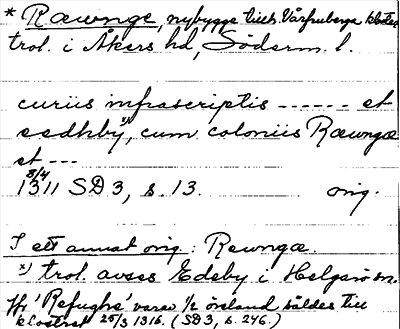 * Ræwnge, nybygge tillh. Vårfruberga kloster
trol. i Åkers hd, Söderm. l.
curiis infrascriptis ------ et
eedhby x), cum coloniis Ræwngæ
et ---
8/4
1311 SD 3, s. 13. orig.
I ett annat orig.: Rewngæ.
x) trol. avses Edeby i Helgarö sn.
Jfr 'Refughæ' varav 1/2 öresland såldes till
klostret 25/3 1316. (SD 3, s. 246.)